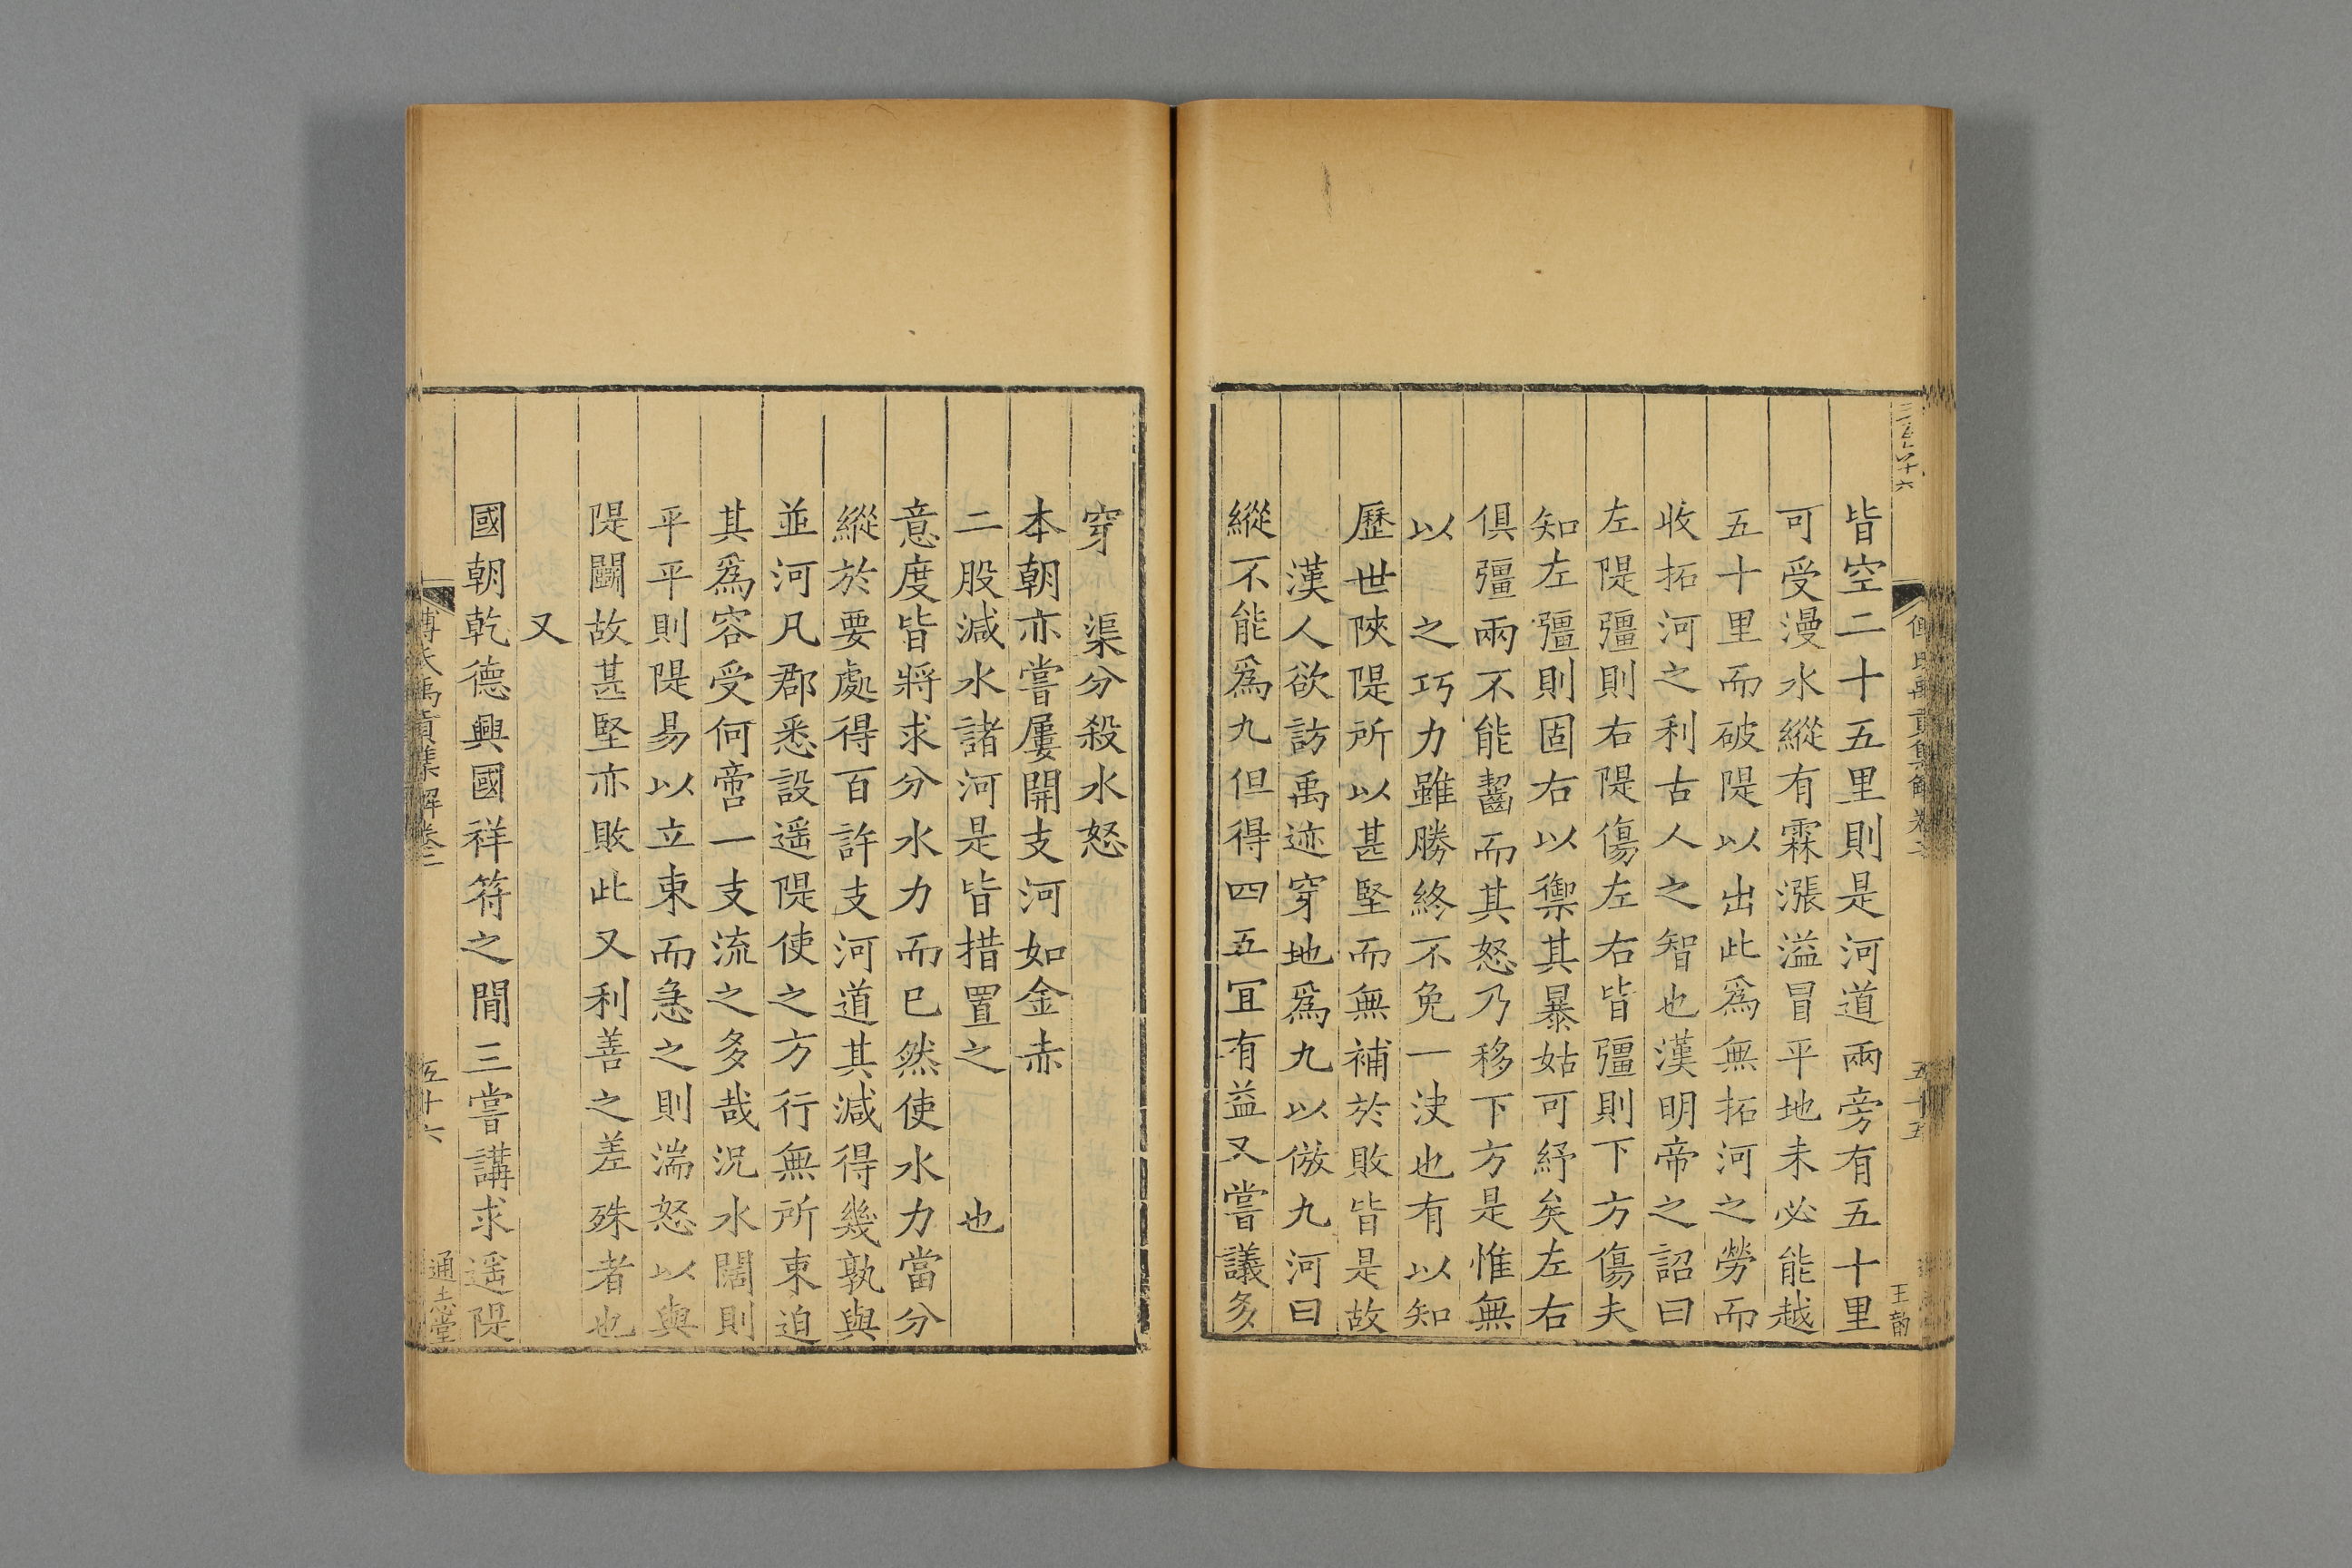 皆空二十五里則是河道兩旁有五十里
可受漫水縱有霖漲溢冒平地未必能越
五十里而破隄以出此爲無拓河之勞而
收拓河之利古人之智也漢明帝之詔曰
左隄彊則右隄傷左右皆彊則下方傷夫
知左彊則固右以禦其暴姑可紓矣左右
俱彊兩不能齧而其怒乃移下方是惟無
以 之巧力雖勝終不免一决也有以知
歷世陝隄所以甚堅而無補於敗皆是故
漢人欲訪禹迹穿地爲九以倣九河曰
縱不能爲九但得四五冝有益又嘗議多
穿 渠分殺水怒
本朝亦嘗屢開支河如金赤
二股減水諸河是皆措置之 也
意度皆將求分水力而已然使水力當分
縱於要處得百許支河道其減得幾孰與
並河凡郡悉設遥隄使之方行無所束迫
其爲容受何啻一支流之多哉況水闊則
平平則隄易以立束而急之則湍怒以與
隄鬬故甚堅亦敗此又利善之差殊者也
又
國朝乾德興國祥符之閒三嘗講求遥隄
傅氏禹貢集解卷二
五十六
通志堂